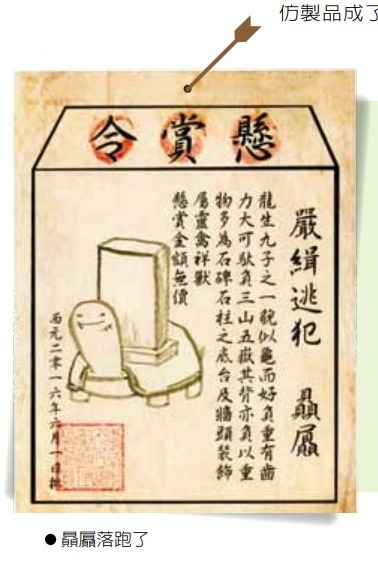 仿製品成了
懸賞令
嚴緝逃犯 贔屓
龍生九子之一貌似龜而好負重有齒
力大可馱負三山五嶽其背亦負以重
物多為石碑石柱之底台及牆頭裝飾
屬靈禽祥獸
懸賞金額無價
西元二零一六年六月一日
● 贔屭落跑了